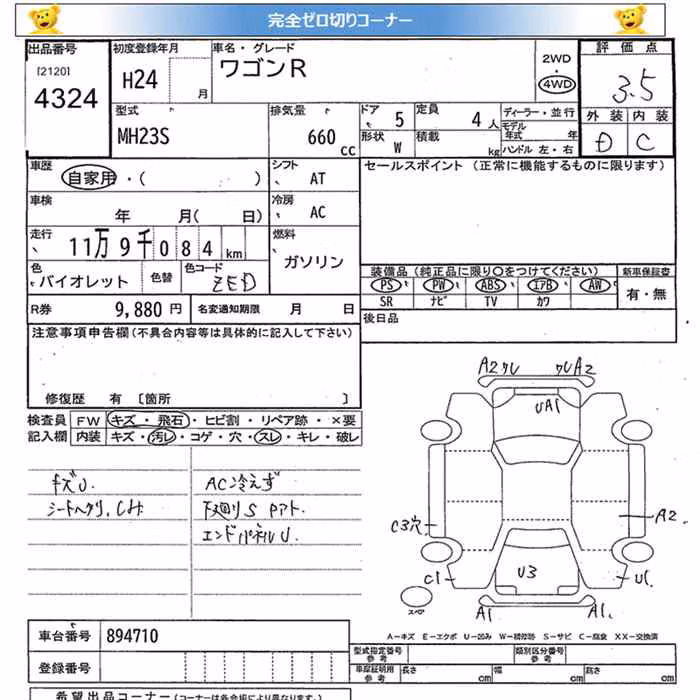 完全ゼロ切りコーナー
出品番号
[2120]
4324
初度登録年月
H24 月
車名・グレード
ワゴンR
2WD
4WD
評価点
3.5
外装 内装
D C
型式
MH23S
排気量
660 cc
ドア 5
形状 W
定員 4 人
積載 kg
ディーラー・並行
モデル年式 年
ハンドル 左・右
車歴
自家用・( )
シフト
AT
セールスポイント (正常に機能するものに限ります)
車検
年 月( 日)
冷房
AC
走行
11万9千084 km
燃料
ガソリン
色
バイオレット
色替
色コード
ZED
装備品 (純正品に限り○をつけてください)
新車保証書
PS PW ABS エアB AW
SR ナビ TV カワ
有・無
R券 9,880 円
名変通知期限 月 日
後日品
注意事項申告欄 (不具合内容等は具体的に記入して下さい)
修復歴 有 [箇所 ]
検査員 FW キズ・飛石・ヒビ割・リペア跡・×要
記入欄 内装 キズ・汚レ・コゲ・穴・スレ・キレ・破レ
キズU.
シートヘタリ.シミ
AC冷えず
下廻りS Pアト
エンドパネルU.
A2クレ クレA2
UA1
C3穴
A2
C1
U3
U1
スペア
A1 A1
A-キズ E-エクボ U-凹み W-補修跡 S-サビ C-腐食 XX-交換済
車台番号 894710
型式指定番号 参考
類別区分番号 参考
登録番号
車庫証明用 参考 長さ cm 幅 cm 高さ cm
希望出品コーナー (コーナーは各会場により異なります。)